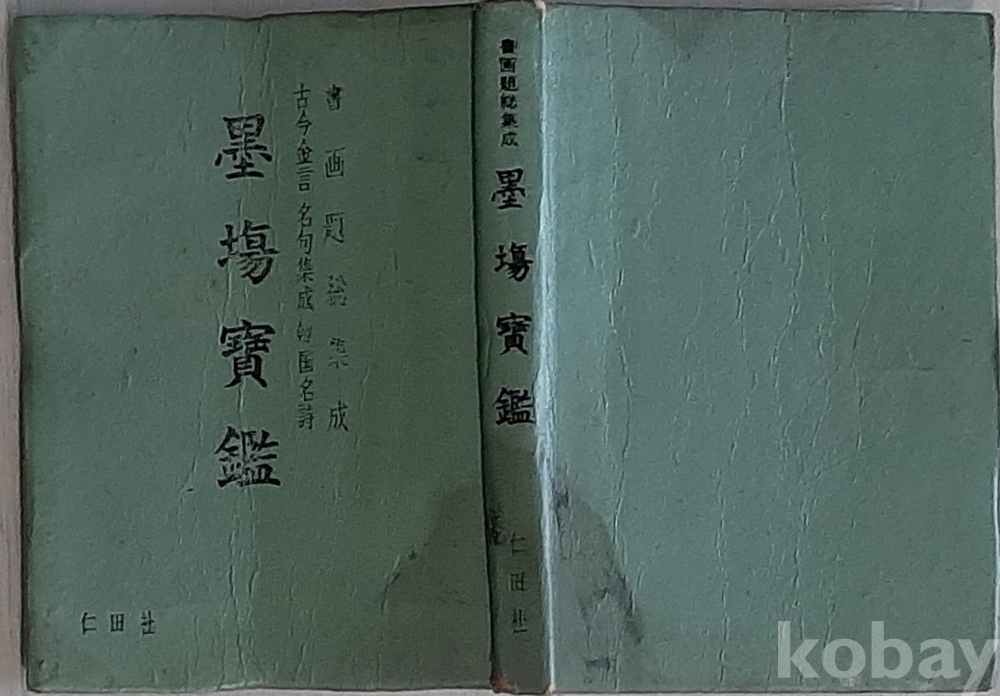 書画題総集成
古今金言名句集成 韓国名詩
墨場寶鑑
仁田社
書画題総集成
墨場寶鑑
仁田社
kobay